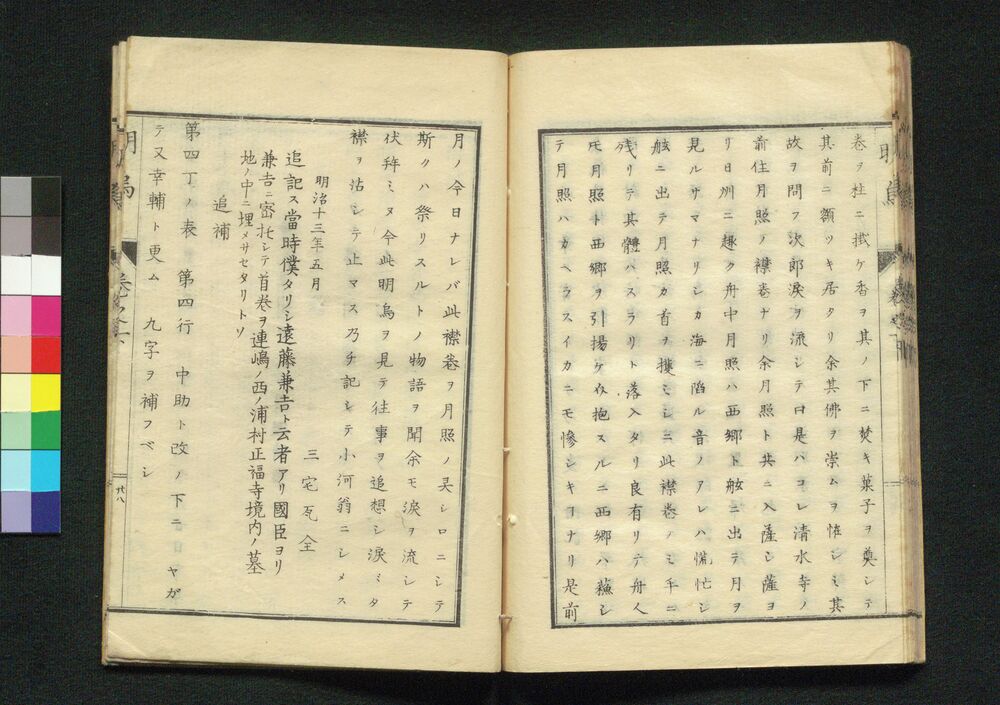 巻ヲ柱ニ掛ケ香ヲ其ノ下ニ焚キ菓子ヲ奠シテ
其前ニ額ツキ居タリ余其佛ヲ崇ムヲ怪シミ其
故ヲ問フ次郎涙ヲ流シテ曰是ハコレ清水寺ノ
前住月照ノ襟巻ナリ余月照ト共ニ入薩シ薩ヨ
リ日州ニ趣ク舟中月照ハ西郷ト舷ニ出テ月ヲ
見ルサマナリシカ海ニ陷ル音ノアレハ慌忙シ
舷ニ出テ月照カ首ヲ攫ミシニ此襟巻ノミ手ニ
残リテ其體ハスラリト落入タリ良有リテ舟人
氏月照ト西郷ヲ引揚ケ介抱スルニ西郷ハ蘇シ
テ月照ハカヘラスイカニモ惨シキヿナリ是前
月ノ今日ナレバ此襟巻ヲ月照ノ灵シロニシテ
斯クハ祭リスルトノ物語ヲ聞余モ涙ヲ流シテ
伏拜ミヌ今此明烏ヲ見テ往事ヲ追想シ涙ミタ
襟ヲ沾シテ止マス乃チ記シテ小河翁ニシメス
明治十三年五月
三宅瓦全
追記ス當時僕タリシ遠藤兼吉ト云者アリ國臣ヨリ
兼吉ニ密托シテ首巻ヲ連嶋ノ西ノ浦村正福寺境内ノ墓
地ノ中ニ埋メサセタリトソ
追補
第四丁ノ表 第四行 中助ト改ノ下ニ日ヤガ
テ又幸輔ト更ム 九字ヲ補フベシ
明烏
巻之下
廿八